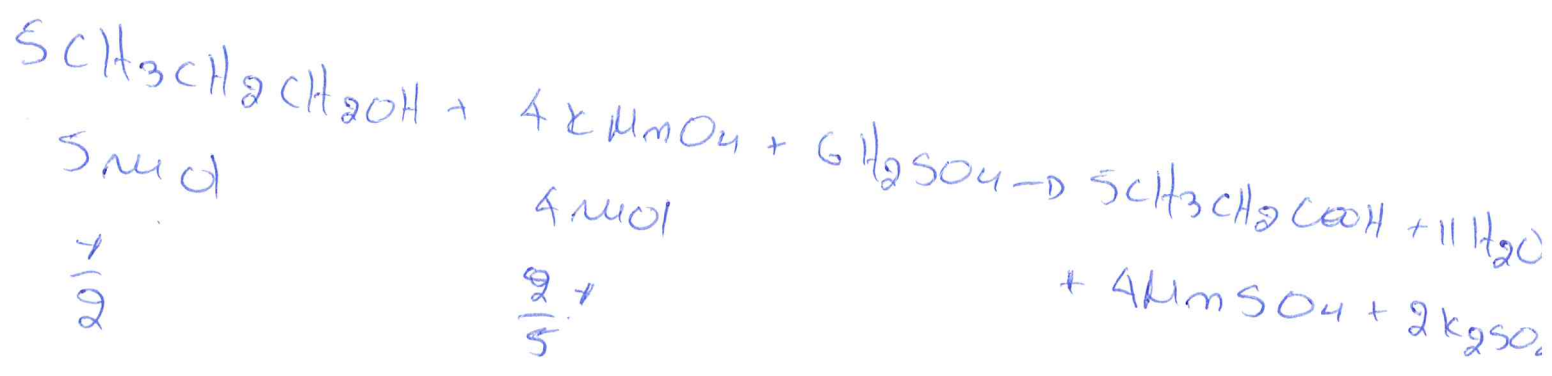 5CH3CH2CH2OH + 4KMnO4 + 6H2SO4 → 5CH3CH2COOH + 11H2O
+ 4MnSO4 + 2K2SO4
5 mol 4 mol
y/2 2y/5